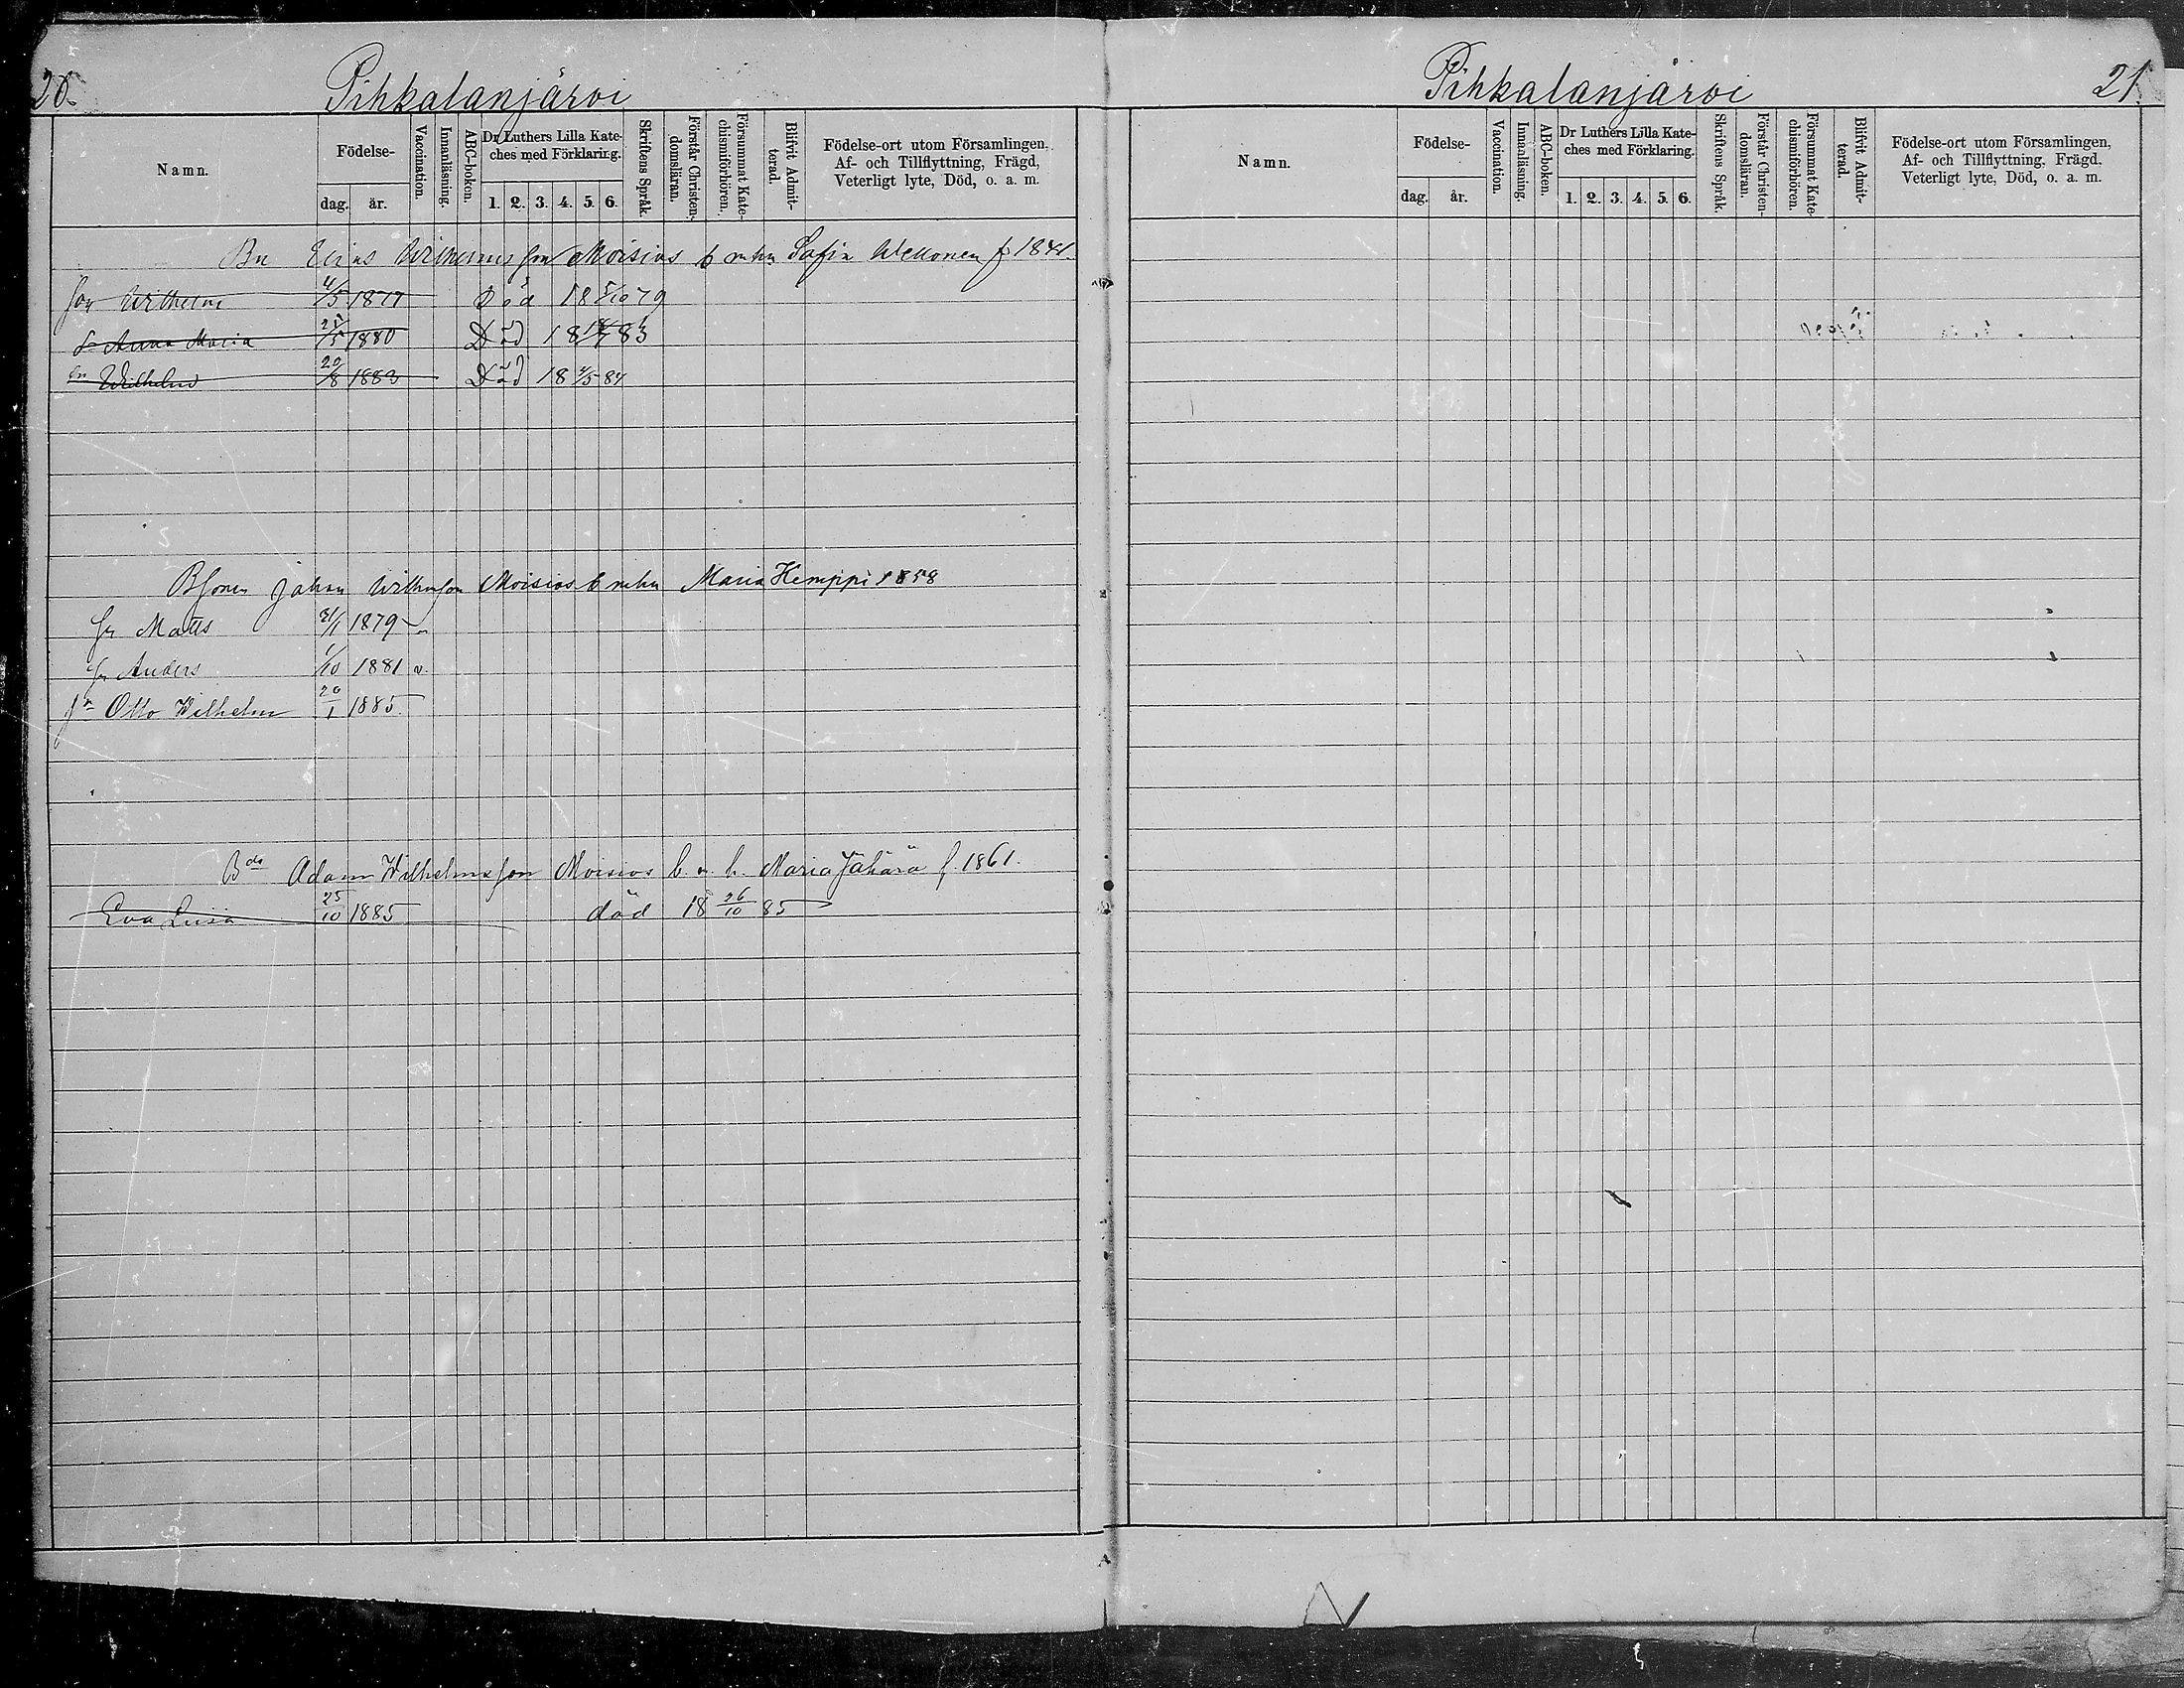 20.
Pihkalanjärvi
Namn.
Födelse-
dag. år.
Vaccination.
Innanläsning.
ABC-boken.
Dr Luthers Lilla Kate-
ches med Förklaring.
1. 2. 3. 4. 5. 6.
Skriftens Språk.
Förstår Christen-
domsläran.
Försummat Kate-
chismiförhören.
Blifvit Admit-
terad.
Födelse-ort utom Församlingen,
Af- och Tillflyttning, Frägd,
Veterligt lyte, Död, o. a. m.
Bn Elias Wilhelmsson Moisios b m hu Sofia Wekonen f 1841.
son Wilhelm 4/5 1877 Död 18 5/10 79
Anna Maria 25/5 1880 Död 18 83
Sn Wilhelm 20/8 1883 Död 18 4/5 84
Bsonen Johan Wilhmson Moisios b mhu Maria Hemppi 1858
Sn Matts 21/1 1879
Sn Anders 1/10 1881 v.
Sn Otto Wilhelm 20/1 1885
Bds Adam Wilhelmsson Moisios b. m. h. Maria Jähärä f. 1861.
Eva Luisa 25/10 1885 död 18 26/10 85
Pihkalanjärvi
21.
Namn.
Födelse-
dag. år.
Vaccination.
Innanläsning.
ABC-boken.
Dr Luthers Lilla Kate-
ches med Förklaring.
1. 2. 3. 4. 5. 6.
Skriftens Språk.
Förstår Christen-
domsläran.
Försummat Kate-
chismiförhören.
Blifvit Admit-
terad.
Födelse-ort utom Församlingen,
Af- och Tillflyttning, Frägd.
Veterligt lyte, Död, o. a. m.